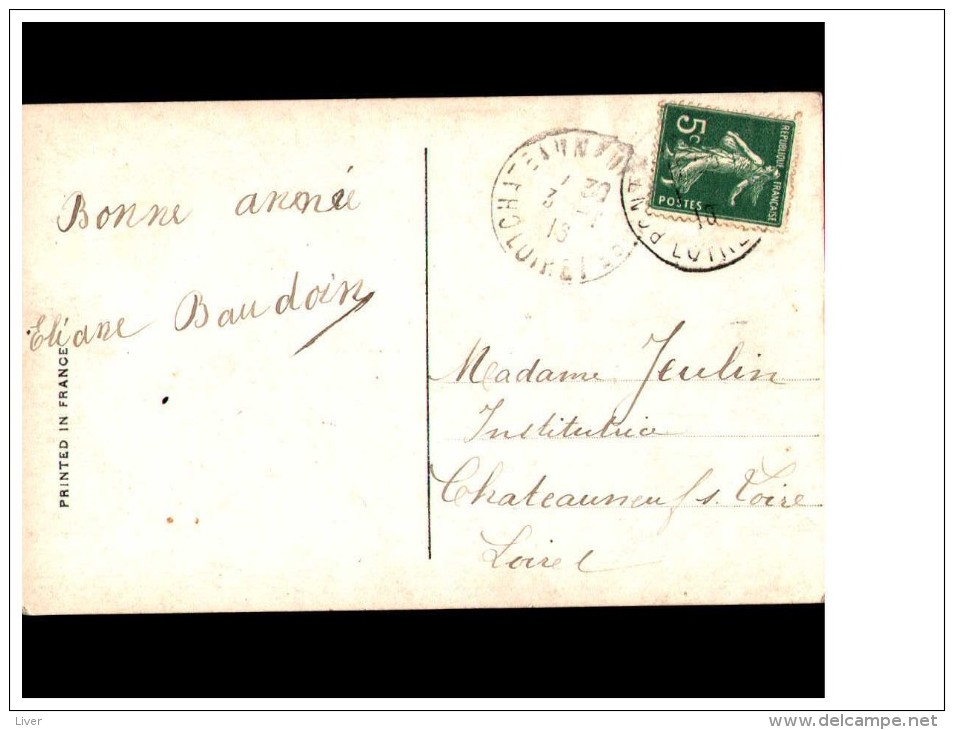 Bonne année
Eliane Baudoin
PRINTED IN FRANCE
5c
REPUBLIQUE FRANÇAISE
POSTES
Madame Jeulin
Institutrice
Chateauneuf s. Loire
Loiret
Liver
www.delcampe.net